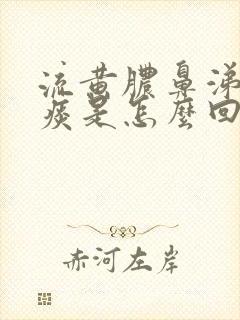 流黄脓鼻涕
痰是怎麼回
赤河左岸